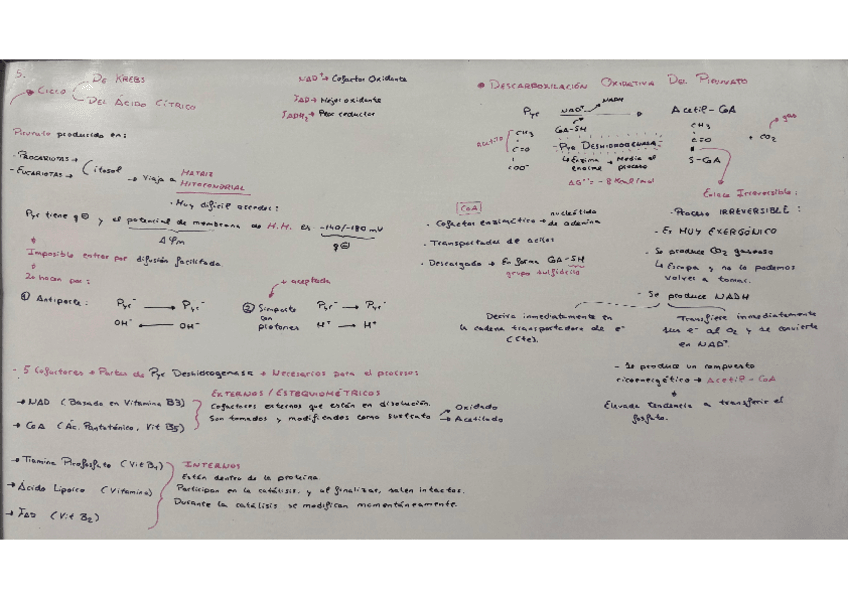 5.
Ciclo
De Krebs
Del Ácido Cítrico
NAD⁺ → Cofactor Oxidante
FAD → Mejor oxidante
FADH₂ → Peor reductor
Piruvato producido en:
- Procariotas →
- Eucariotas →
Citosol
→ Viaja a MATRIZ
MITOCONDRIAL
• Muy difícil acceder:
Pyr tiene q⊖ y el potencial de membrana de M.M. es -140/-180 mV
Δψm
q⊖
Imposible entrar por difusión facilitada
Lo hacen por:
+ aceptada
① Antiporte:
Pyr⁻ → Pyr⁻
OH⁻ ← OH⁻
② Simporte
con
protones
Pyr⁻ → Pyr⁻
H⁺ → H⁺
- 5 Cofactores → Partes de Pyr Deshidrogenasa → Necesarios para el proceso:
EXTERNOS / ESTEQUIOMÉTRICOS
→ NAD (Basada en Vitamina B3)
→ CoA (Ác. Pantoténico, Vit B5)
Cofactores externos que están en disolución.
Son tomados y modificados como sustrato
→ Oxidado
→ Acetilado
→ Tiamina Pirofosfato (Vit B₁)
→ Ácido Lipoico (Vitamina)
→ FAD (Vit B₂)
INTERNOS
Están dentro de la proteína
Participan en la catálisis, y al finalizar, salen intactos.
Durante la catálisis se modifican momentáneamente.
• DESCARBOXILACIÓN OXIDATIVA DEL PIRUVATO
Pyr
NAD⁺
NADH
Acetil-CoA
CoA-SH
CH₃
C=O
COO⁻
Pyr DESHIDROGENASA
↳ Enzima → Media el
enorme proceso
ΔG°' = -8 Kcal/mol
CH₃
C=O
S-CoA
+ CO₂
gas
Enlace Irreversible:
CoA
• Cofactor enzimático → nucleótido
de adenina
• Transportador de acilos
• Descargado → En forma CoA-SH
grupo sulfidrilo
• Proceso IRREVERSIBLE:
- Es MUY EXERGÓNICO
- Se produce CO₂ gaseoso
↳ Escapa y no lo podemos
volver a tomar.
- Se produce NADH
Deriva inmediatamente en
la cadena transportadora de e⁻
(Cte).
Transfiere inmediatamente
sus e⁻ al O₂ y se convierte
en NAD⁺.
- Se produce un compuesto
ricoenergético → Acetil-CoA
Elevada tendencia a transferir el
fosfato.